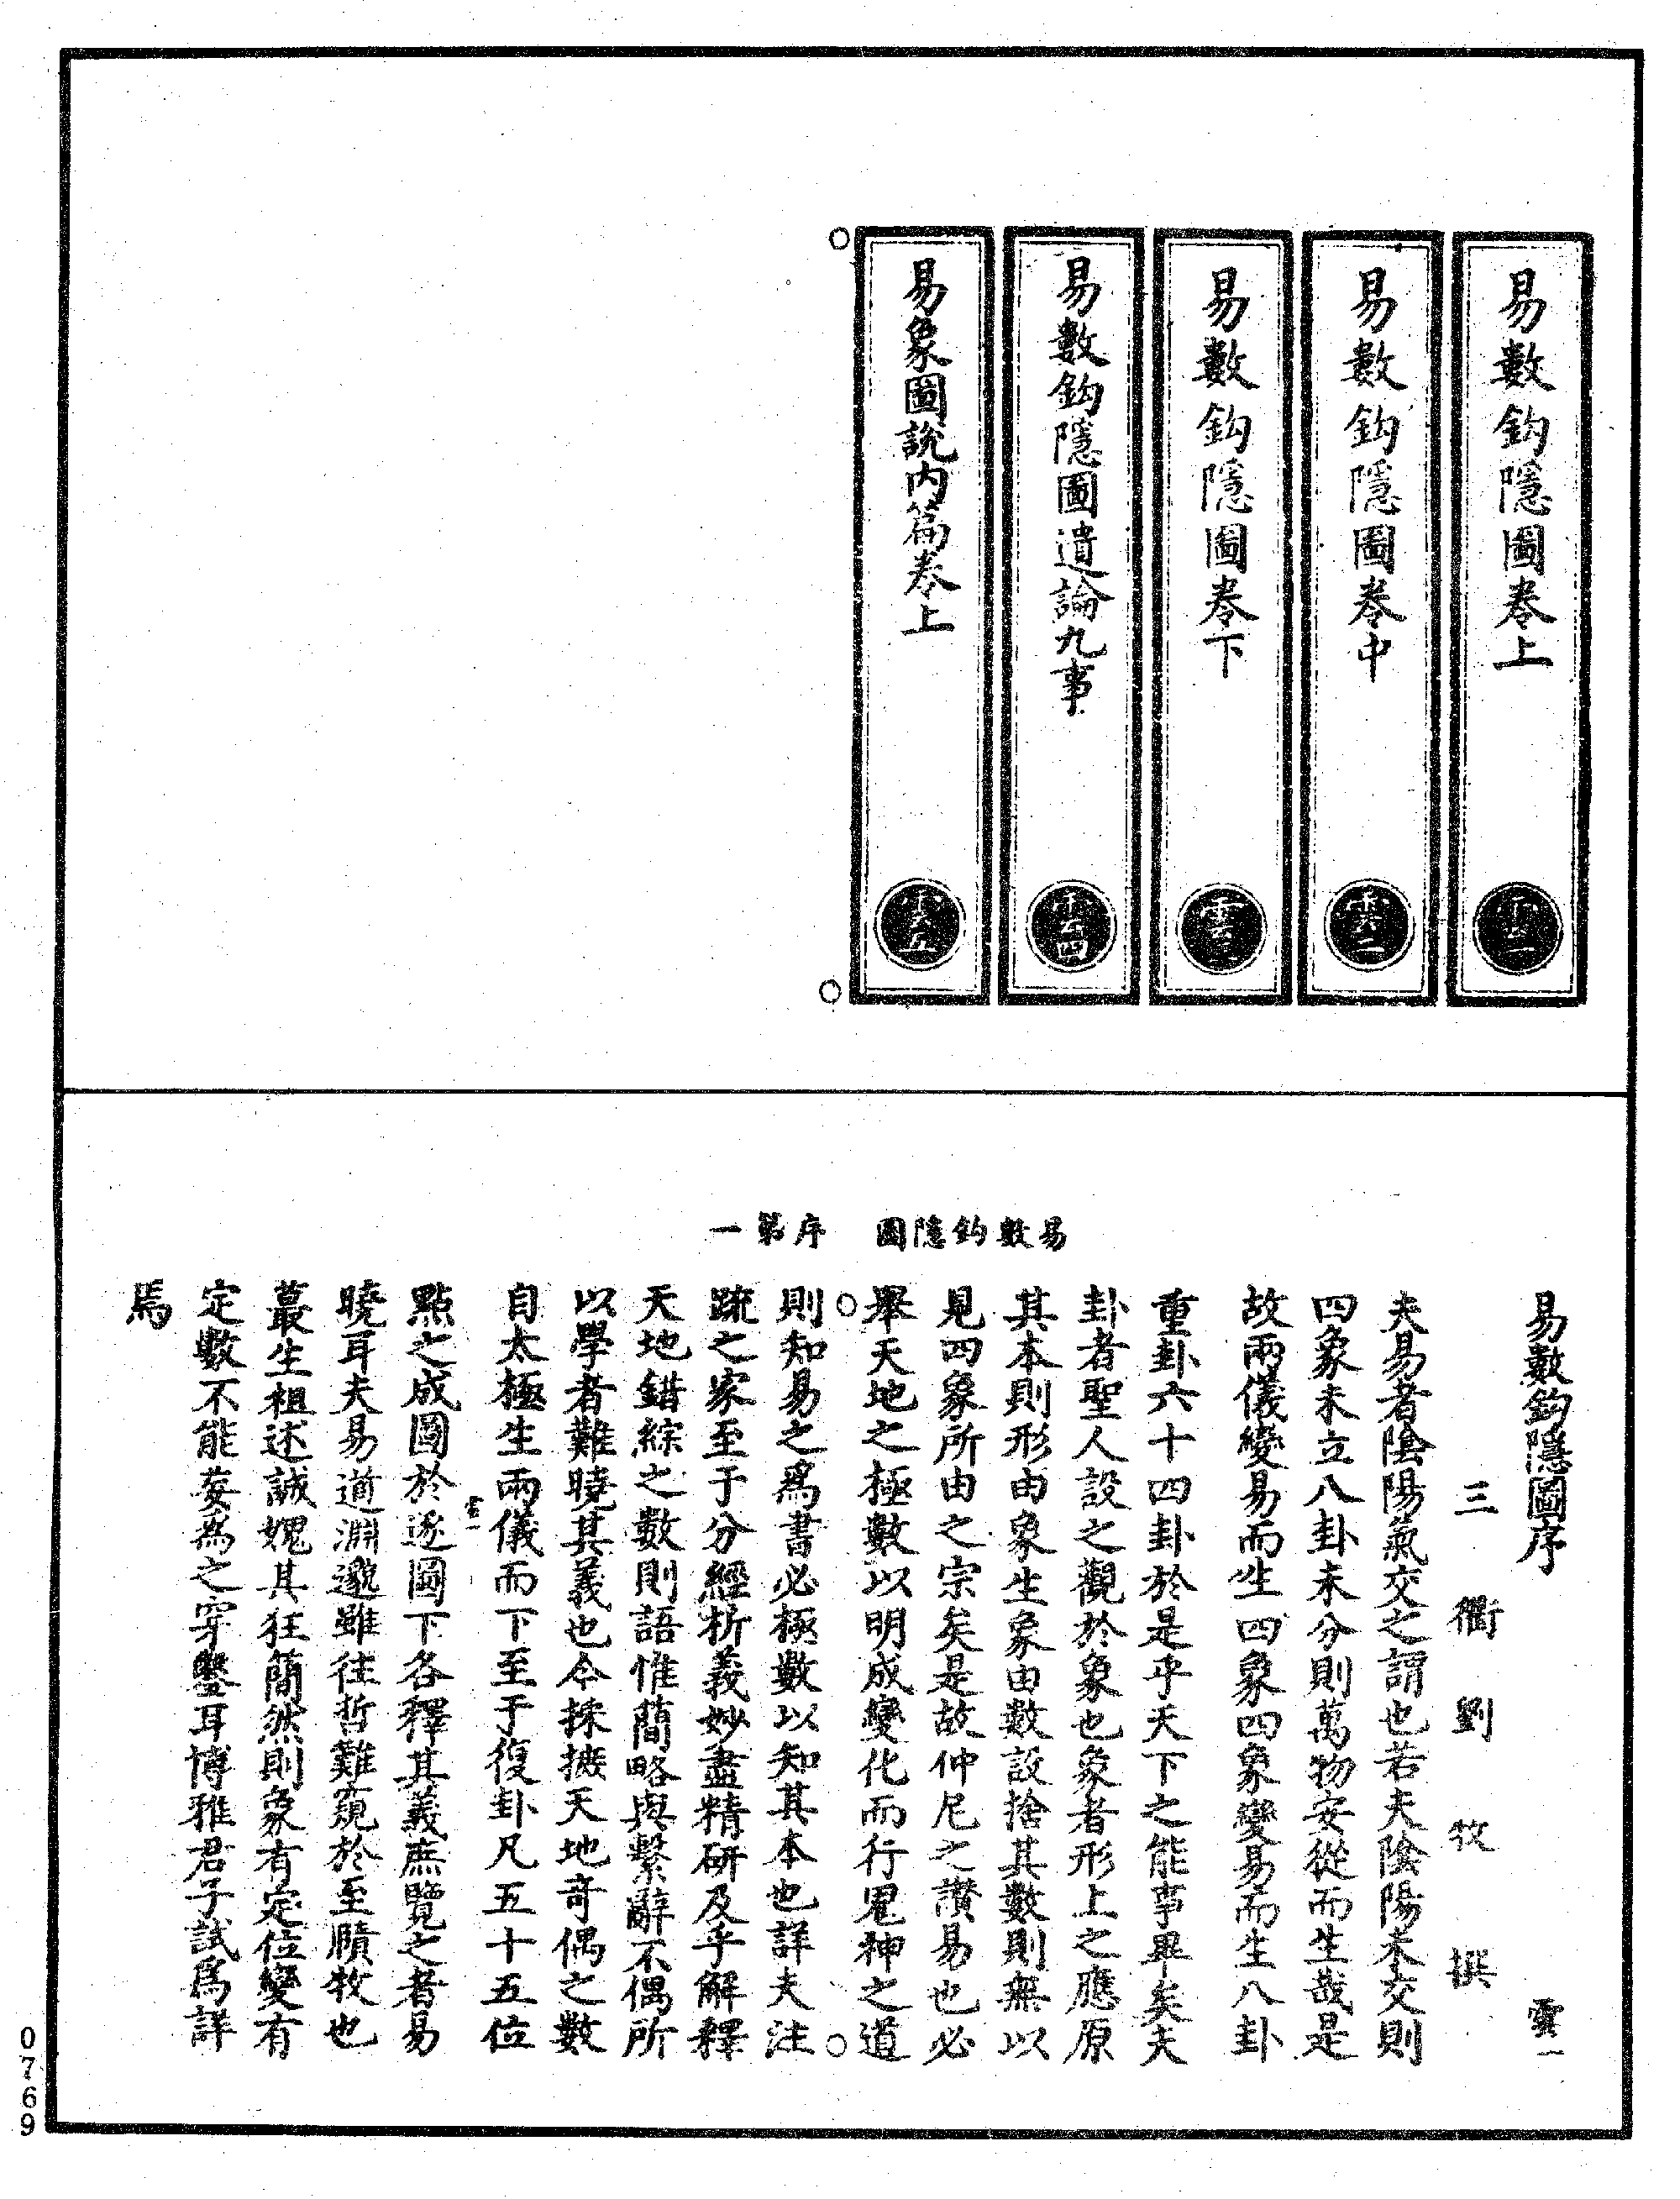 易數鈎隱圖卷上
雲一
易數鈎隱圖卷中
雲二
易數鈎隱圖卷下
雲三
易數鈎隱圖遺論九事
雲四
易象圖說內篇卷上
雲五
易數鈎隱圖　序第一
易數鈎隱圖序　雲一
三衢劉牧撰
夫易者陰陽氣交之謂也若夫陰陽未交則
四象未立八卦未分則萬物安從而生哉是
故兩儀變易而生四象四象變易而生八卦
重卦六十四卦於是乎天下之能事畢矣夫
卦者聖人設之觀於象也象者形上之應原
其本則形由象生象由數設捨其數則無以
見四象所由之宗矣是故仲尼之讚易也必
舉天地之極數以明成變化而行鬼神之道
則知易之爲書必極數以知其本也詳夫注
疏之家至于分經析義妙盡精研及乎解釋
天地錯綜之數則語惟簡略與繫辭不偶所
以學者難曉其義也今採摭天地奇偶之數
自太極生兩儀而下至于復卦凡五十五位
雲一
點之成圖於逐圖下各釋其義庶覽之者易
曉耳夫易道淵邈雖往哲難窺於至賾牧也
蕞生祖述誠媿其狂簡然則象有定位變有
定數不能妄爲之穿鑿耳博雅君子試爲詳
焉
0769